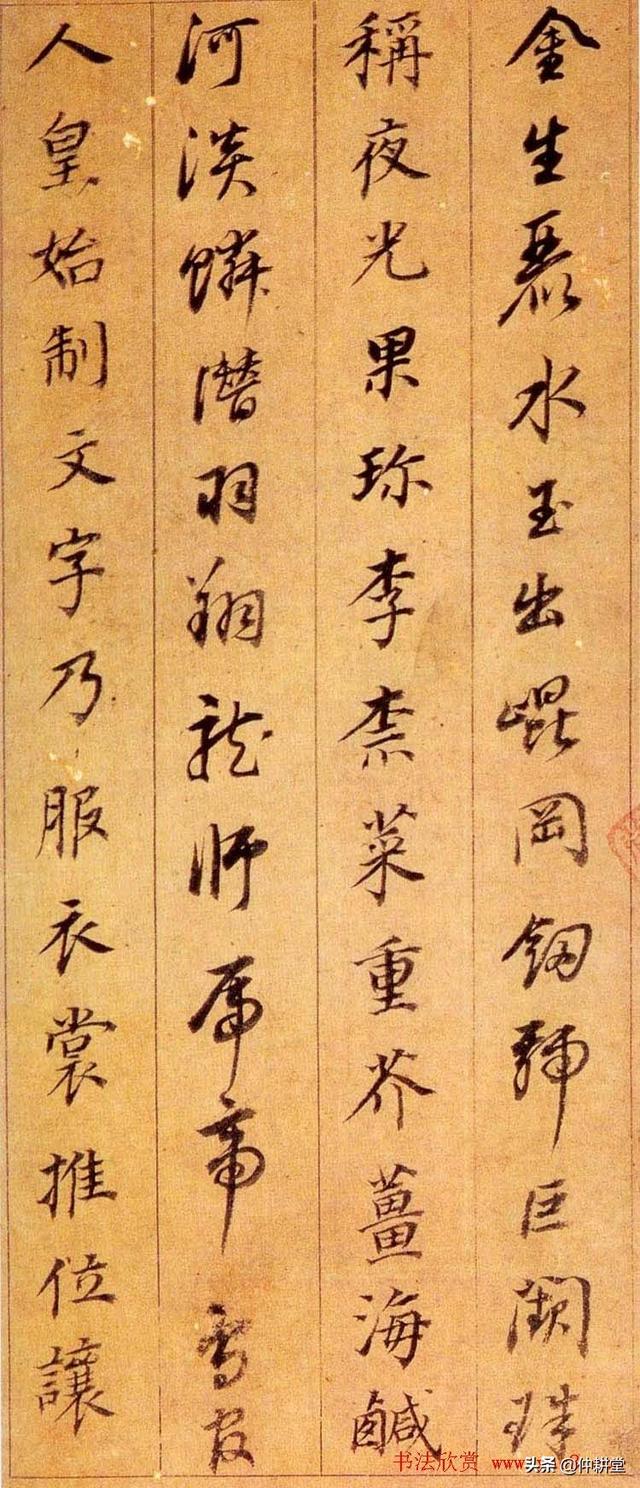 金生麗水玉出崐岡劔號巨闕珠
稱夜光果珍李柰菜重芥薑海鹹
河淡鱗潛羽翔龍師火帝鳥官
人皇始制文字乃服衣裳推位讓
书法欣赏 www
头条 @仲耕堂